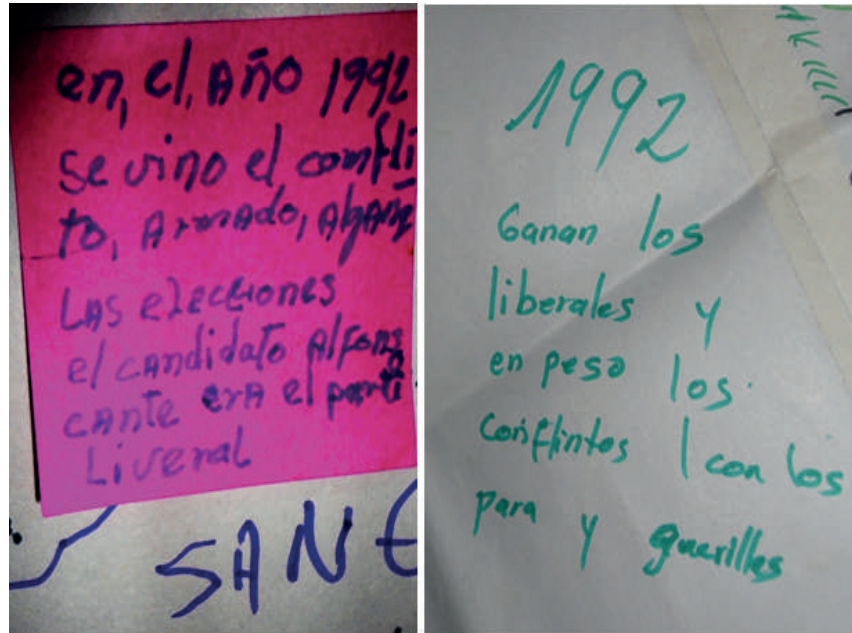 en, el, AÑO 1992
se vino el confli
to, ArmADO, AlgAÑAR
LAS elecciones
el cANdidaTo Alfonso
cANTe erA el parti
Liveral
SANE
1992
Ganan los
liberales y
en peso los.
conflintos | con los
para y guerilles